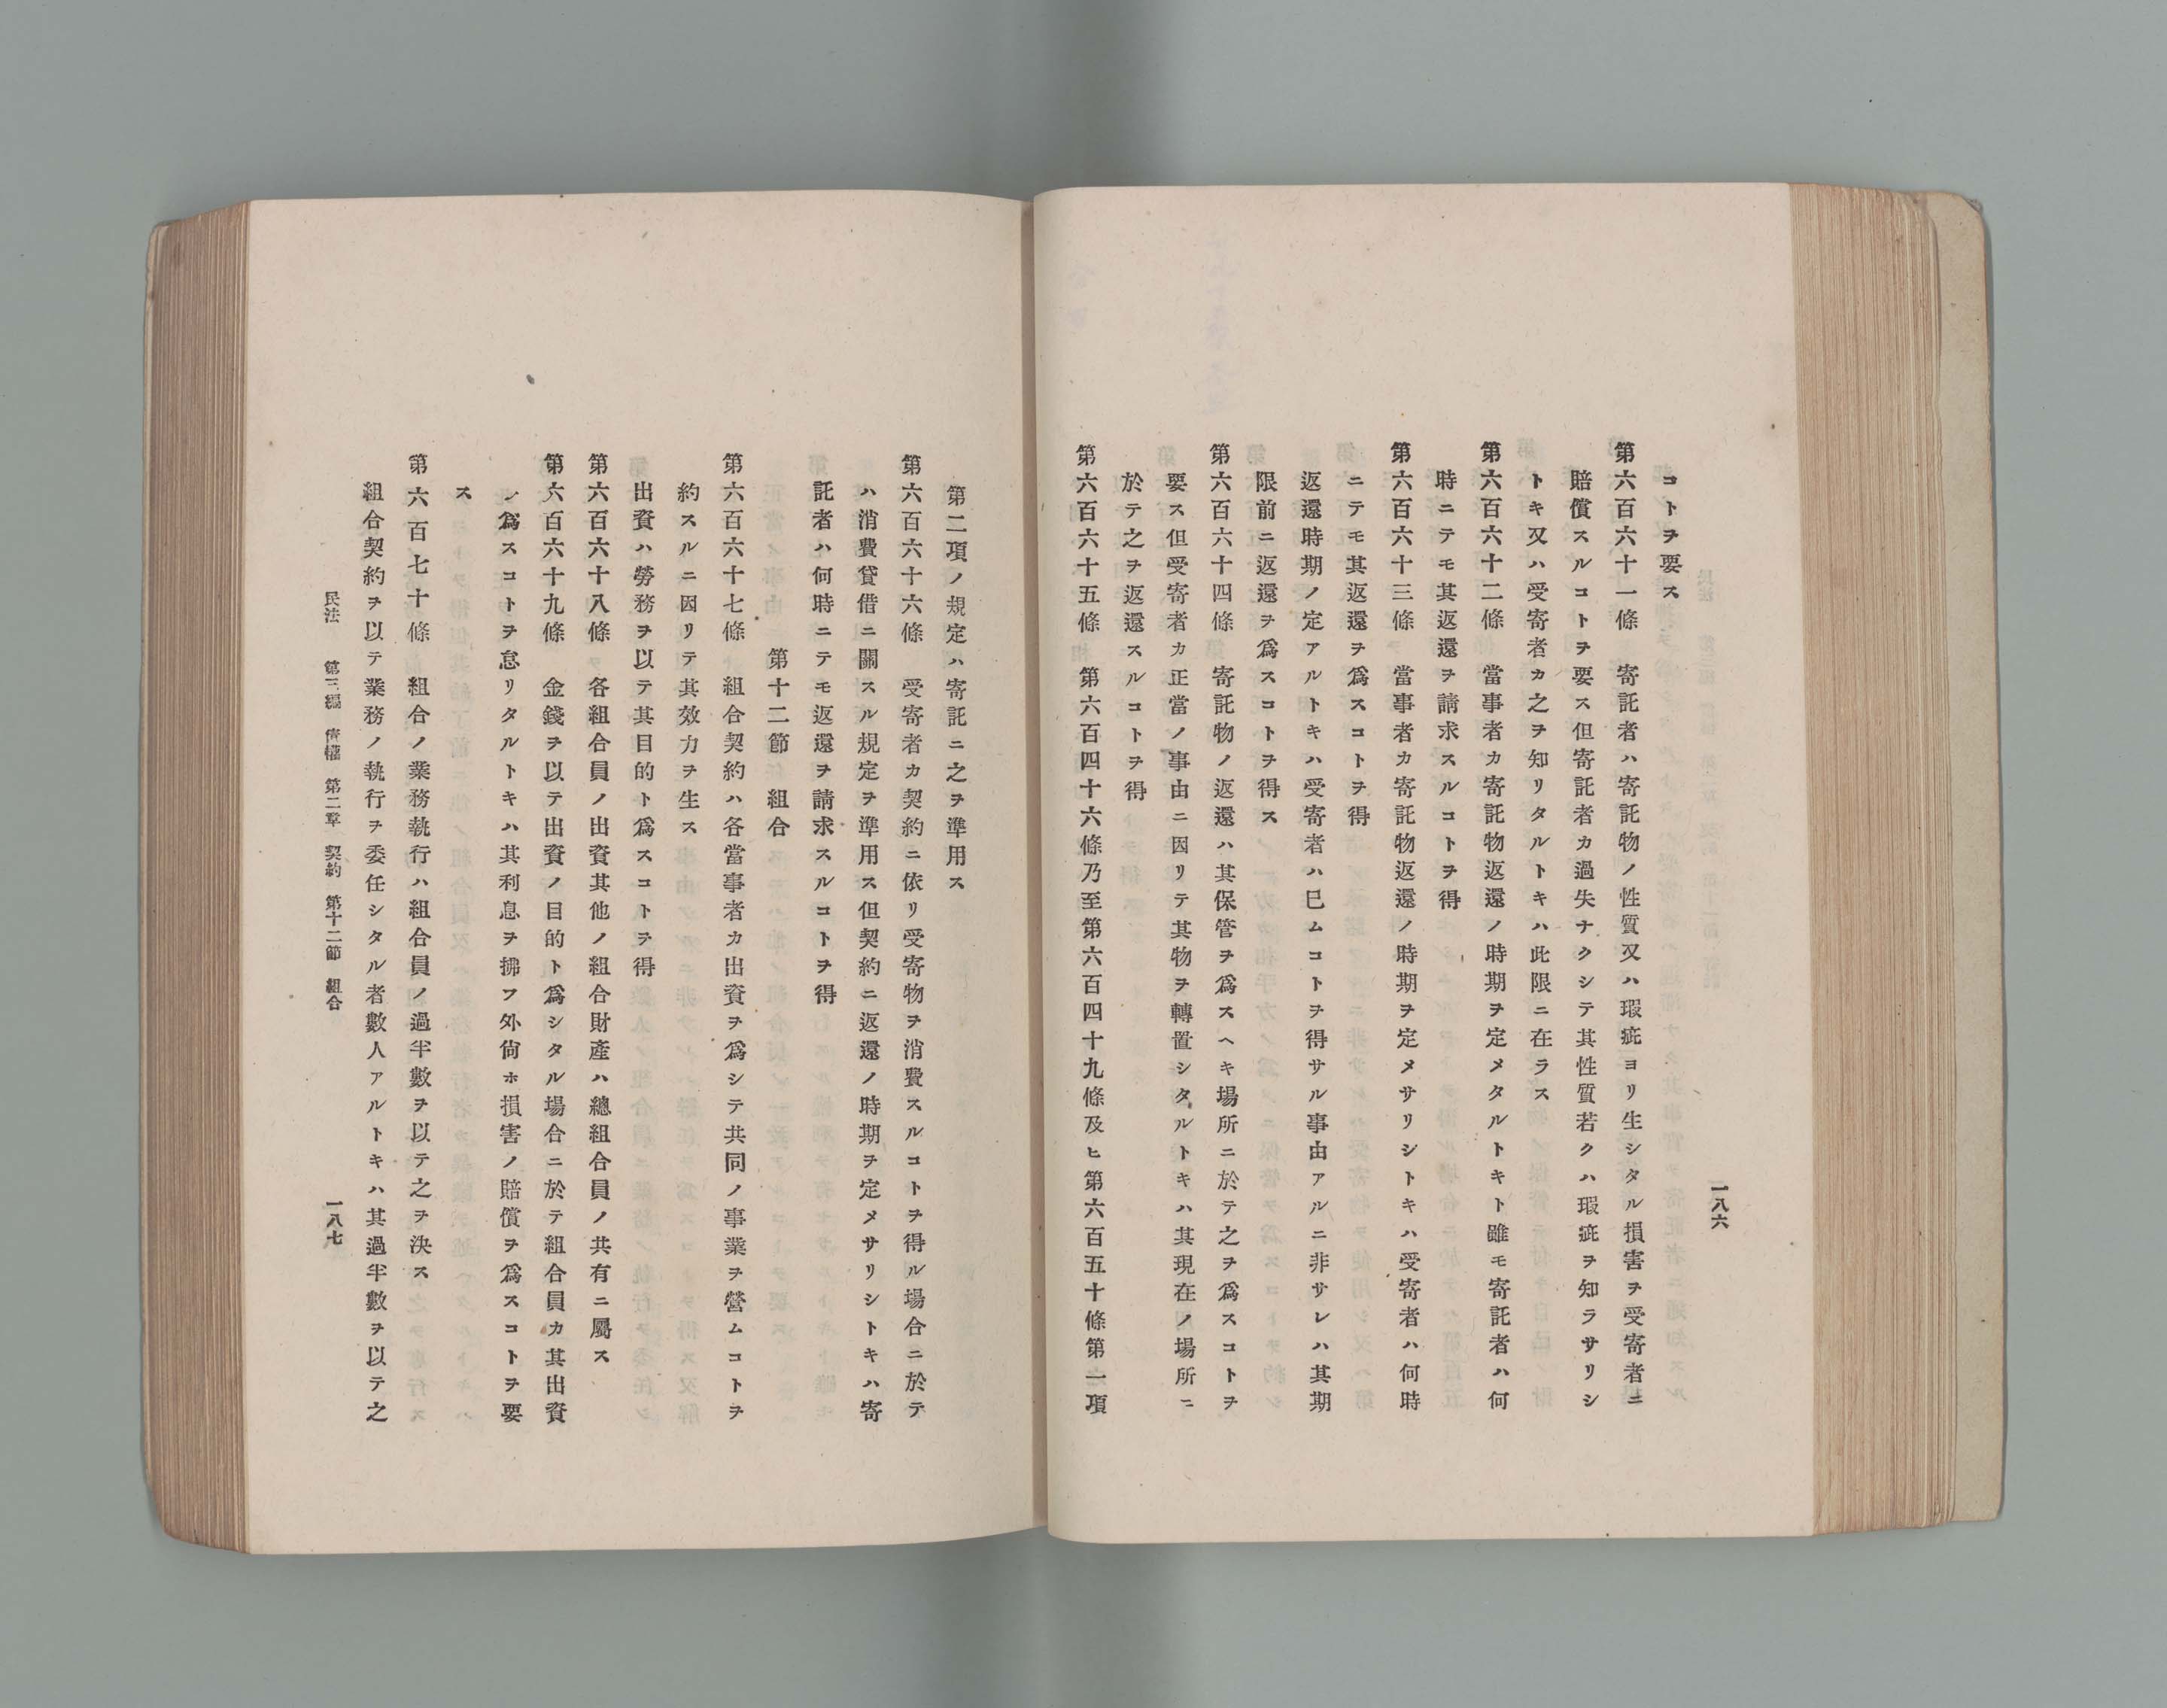 一八六
コトヲ要ス
第六百六十一條　寄託者ハ寄託物ノ性質又ハ瑕疵ヨリ生シタル損害ヲ受寄者ニ
賠償スルコトヲ要ス但寄託者カ過失ナクシテ其性質若クハ瑕疵ヲ知ラサリシ
トキ又ハ受寄者カ之ヲ知リタルトキハ此限ニ在ラス
第六百六十二條　當事者カ寄託物返還ノ時期ヲ定メタルトキト雖モ寄託者ハ何
時ニテモ其返還ヲ請求スルコトヲ得
第六百六十三條　當事者カ寄託物返還ノ時期ヲ定メサリシトキハ受寄者ハ何時
ニテモ其返還ヲ爲スコトヲ得
返還時期ノ定アルトキハ受寄者ハ已ムコトヲ得サル事由アルニ非サレハ其期
限前ニ返還ヲ爲スコトヲ得ス
第六百六十四條　寄託物ノ返還ハ其保管ヲ爲スヘキ場所ニ於テ之ヲ爲スコトヲ
要ス但受寄者カ正當ノ事由ニ因リテ其物ヲ轉置シタルトキハ其現在ノ場所ニ
於テ之ヲ返還スルコトヲ得
第六百六十五條　第六百四十六條乃至第六百四十九條及ヒ第六百五十條第一項
第二項ノ規定ハ寄託ニ之ヲ準用ス
第六百六十六條　受寄者カ契約ニ依リ受寄物ヲ消費スルコトヲ得ル場合ニ於テ
ハ消費貸借ニ關スル規定ヲ準用ス但契約ニ返還ノ時期ヲ定メサリシトキハ寄
託者ハ何時ニテモ返還ヲ請求スルコトヲ得
第十二節　組合
第六百六十七條　組合契約ハ各當事者カ出資ヲ爲シテ共同ノ事業ヲ營ムコトヲ
約スルニ因リテ其效力ヲ生ス
出資ハ勞務ヲ以テ其目的ト爲スコトヲ得
第六百六十八條　各組合員ノ出資其他ノ組合財產ハ總組合員ノ共有ニ屬ス
第六百六十九條　金錢ヲ以テ出資ノ目的ト爲シタル場合ニ於テ組合員カ其出資
ヲ爲スコトヲ怠リタルトキハ其利息ヲ拂フ外尙ホ損害ノ賠償ヲ爲スコトヲ要
ス
第六百七十條　組合ノ業務執行ハ組合員ノ過半數ヲ以テ之ヲ決ス
組合契約ヲ以テ業務ノ執行ヲ委任シタル者數人アルトキハ其過半數ヲ以テ之
民法　第三編　債權　第二章　契約　第十二節　組合　一八七